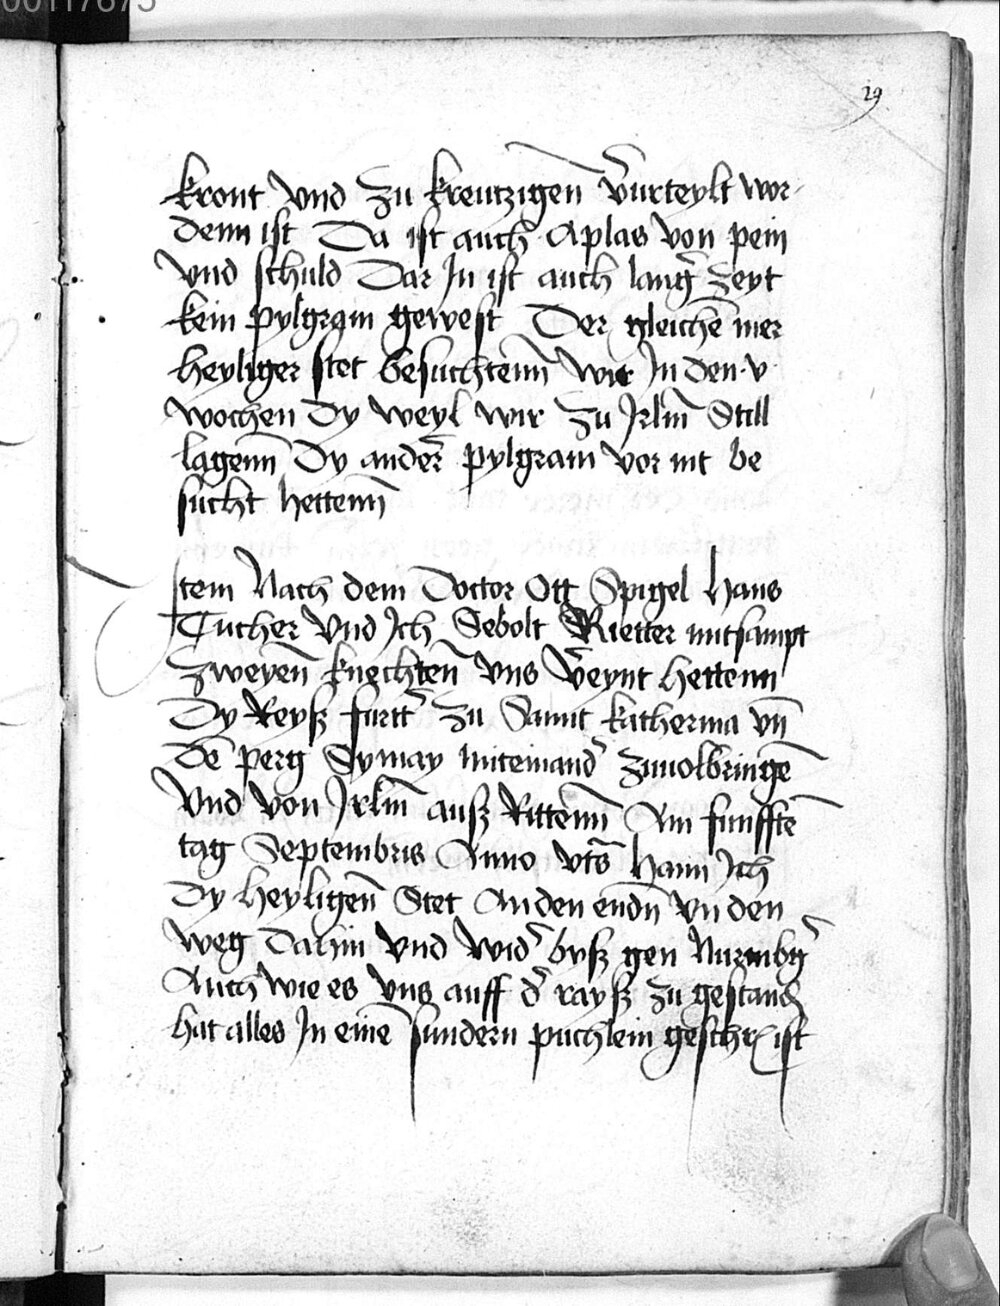 00117875
29
kront vnd zu kreutzigen v̄urteylt wor-
denn ist Da ist auch Aplas von pein
vnd schuld Dar Jn ist auch lang zeyt
kein pylgram gewest Der gleichē mer
heyliger stet besuchtenn wir Jn den v
wochen Dy weyl wir zu Jrlm̄ Still
lagenn Dy ander pylgram vor nit be
sucht hettenn
Jtem Nach dem Doctor Ott Spigel Hans
Tucher vnd Jch Sebolt Rietter mitsampt
zweyen̄ knechten̄ vns v̄eynt hettenn
Dy Reyß furtt zu Sannt katherina vn̄
dē perg Synay miteinand̄ zuuolbringen̄
vnd von Jrlm̄ auß Rittenn Am funfftē
tag Septembris Anno vts̄ Hann Jch
Dy heyligen̄ Stet An den endn̄ vn̄ den
weg Dahin vnd wid̄ byß gen Nurmbḡ
Auch wie es vns auff d̄ rayß zu gestand̄
hat alles Jn eine sundern puchlein geschr ist